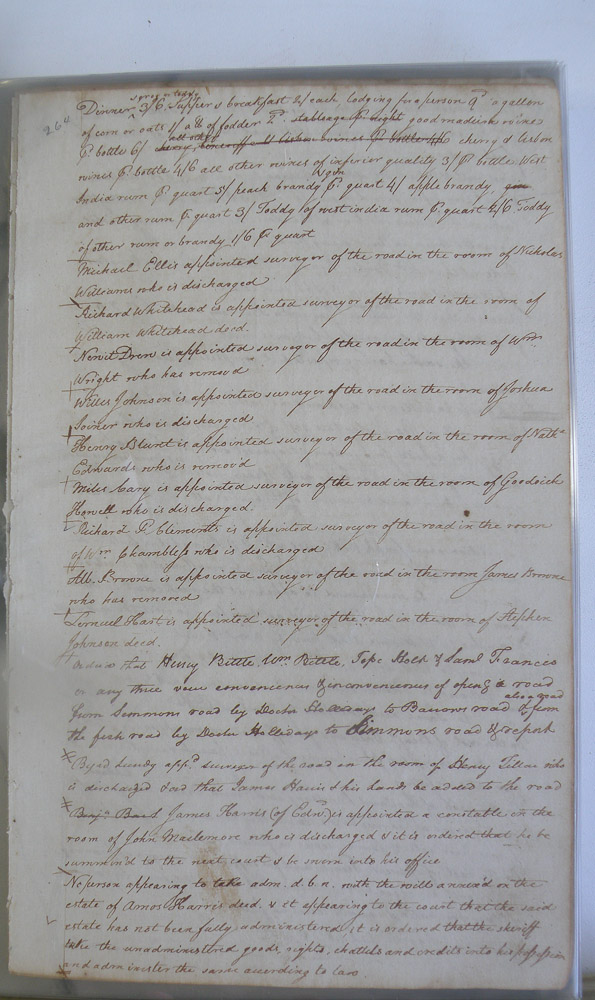 264
Dinner 3/6. Supper & breakfast 2/ each, lodging for a person a gallon
of corn or oats 1/ a lb of fodder 2d. stablage good madeira wine
P. bottle 6/ all other Lisbon wines P. bottle 4/6 cherry & Lisbon
wines P. bottle 4/6 all other wines of inferior quality 3/ P. bottle West
India rum P. quart 5/ peach brandy P. quart 4/ apple brandy,
and other rum P. quart 3/ Toddy of west india rum P. quart 2/6 Toddy
of other rum or brandy 1/6 P quart
Michael Ellis appointed surveyor of the road in the room of Nicholas
Williams who is discharged
Richard Whitehead is appointed surveyor of the road in the room of
William Whitehead decd.
Newit Drew is appointed surveyor of the road in the room of Wm.
Wright who has removd
Willis Johnson is appointed surveyor of the road in the room of Joshua
Joiner who is discharged
Henry Blunt is appointed surveyor of the road in the room of Nathl.
Edwards who is remov'd
Miles Cary is appointed surveyor of the road in the room of Goodrich
Howell who is discharged.
Richard P. Clements is appointed surveyor of the road in the room
of Wm. Chambless who is discharged
Alb. Browne is appointed surveyor of the road in the room James Browne
who has removed
Lemuel Hart is appointed surveyor of the road in the room of Stephen
Johnson decd.
Order that Henry Bittle, Wm. Bittle, Holt & Saml Francis
or any three view conveniences & inconveniences of openg. a road
from Simmons road by Doctr Holladays to Barrows road also a road from
the fish road by Doctr Holladays to Simmons road & report
Byrd Lundy appd. surveyor of the road in the room of Henry who
is discharged & ord that James Harris & his hands be added to the road
James Harris (of Edwd.) is appointed a constable in the
room of John who is discharged & it is ordered that he be
summon'd to the next court & be sworn into his office
No person appearing to take adm. d. b. n. with the will annex'd on the
estate of Amos Harris decd. & it appearing to the court that the said
estate has not been fully administered, it is ordered that the sheriff
take the unadministered goods, rights, chattels and credits into his possession
and administer the same according to law.